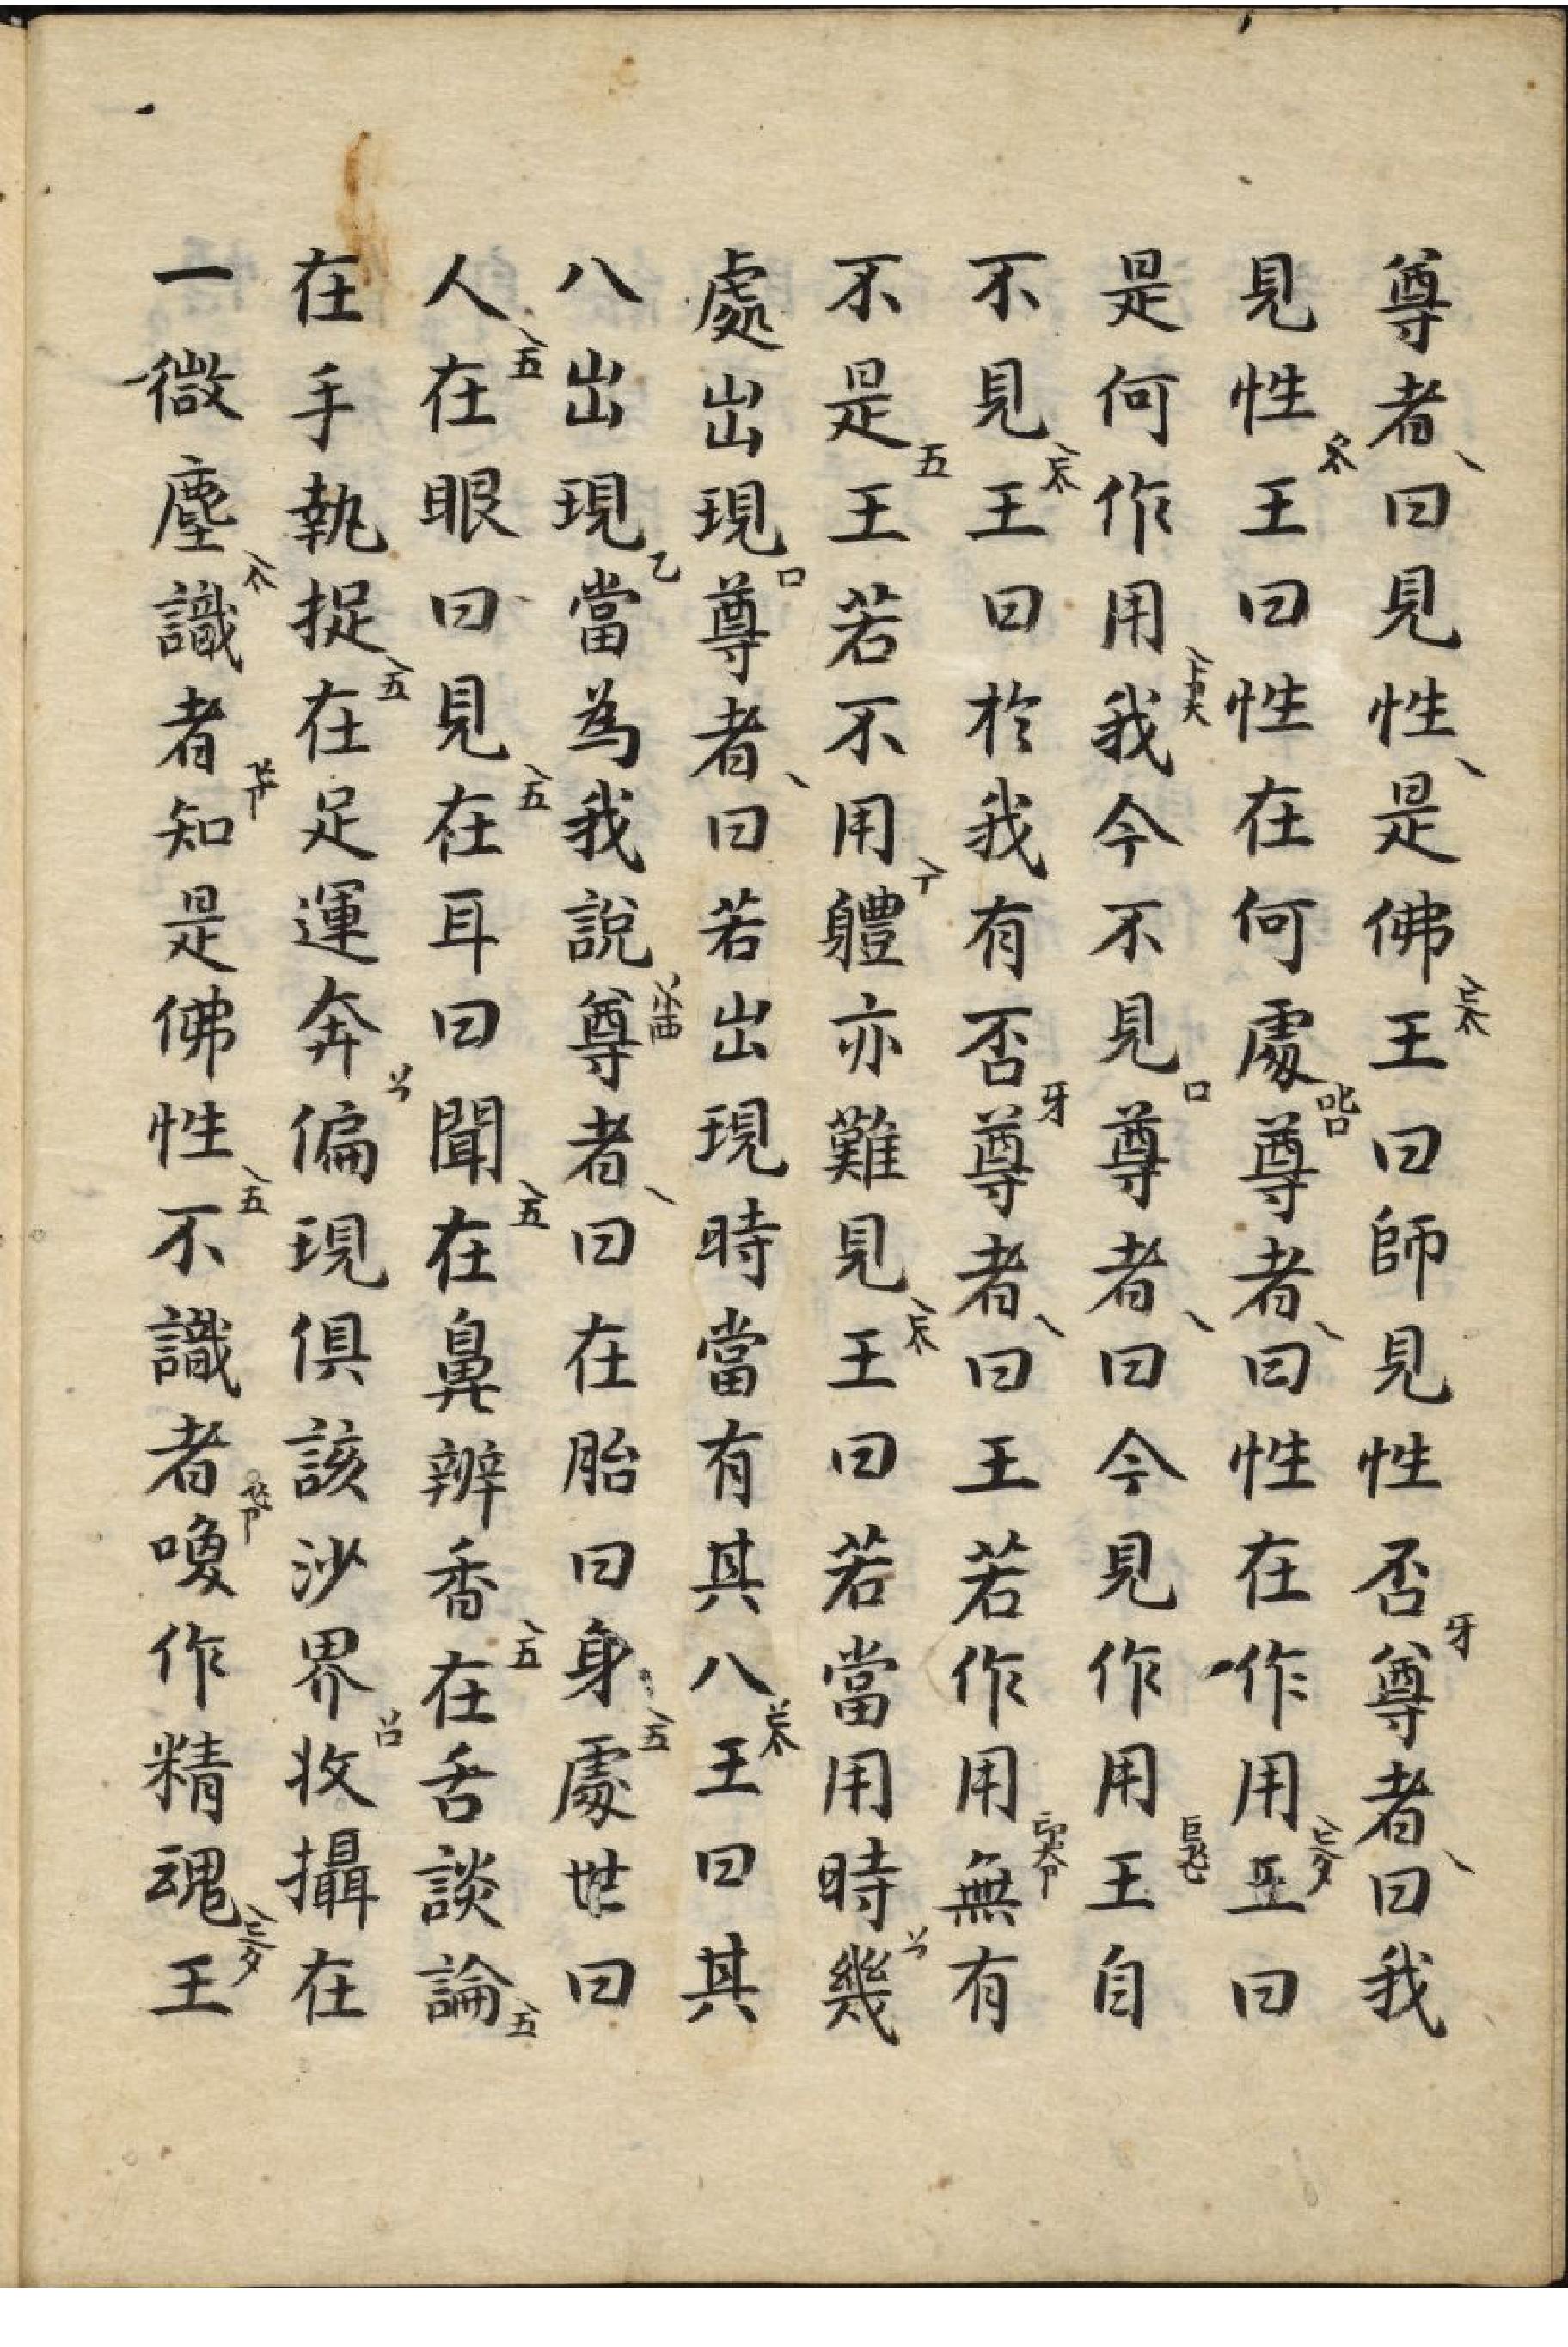 尊者曰見性是佛王曰師見性否尊者曰我
見性王曰性在何處尊者曰性在作用王曰
是何作用我今不見尊者曰今見作用王自
不見王曰於我有否尊者曰王若作用無有
不是王若不用軆亦難見王曰若當用時幾
處出現尊者曰若出現時當有其八王曰其
八出現當為我說尊者曰在胎曰身處世曰
人在眼曰見在耳曰聞在鼻辨香在舌談論
在手執捉在足運奔徧現俱該沙界收攝在
一微塵識者知是佛性不識者喚作精魂王